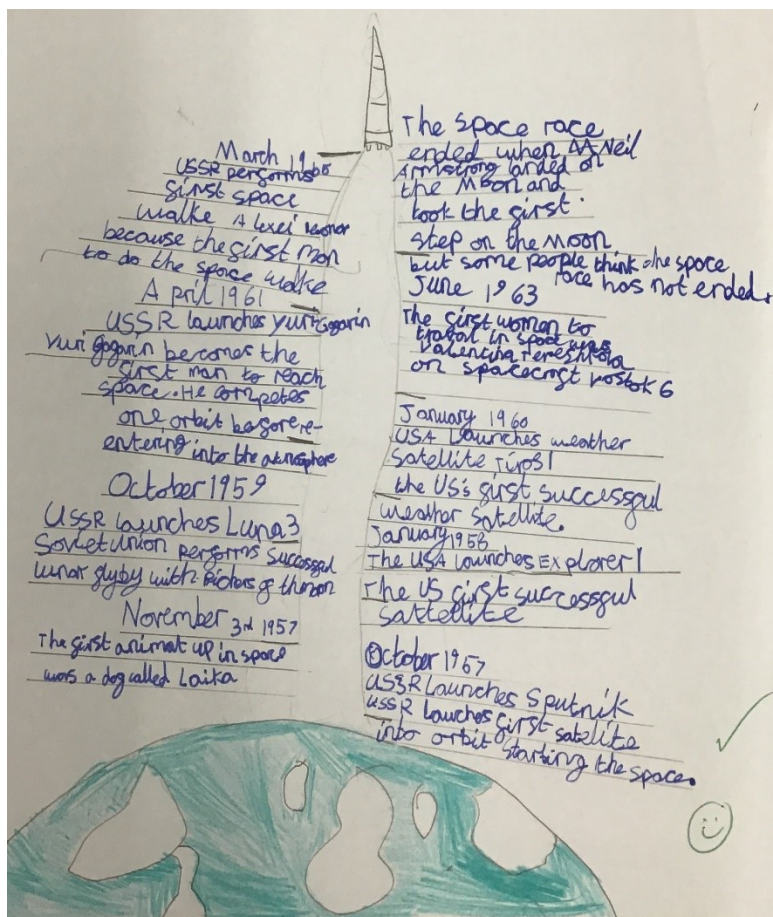 March 1965
USSR performs
first space
walke Alexei leonor
because the first man
to do the space walke
April 1961
USSR launches Yuri Gagarin
Yuri gagarin becomes the
first man to reach
space. He competes
one orbit before re-
entering into the atmosphere
October 1959
USSR launches Luna 3
Soviet Union performs successful
lunar flyby with picters of the moon
November 3rd 1957
The first animat up in space
was a dog called Laika
The space race
ended when Neil
Armstrong landed on
the Moon and
took the first
step on the Moon
but some people think the space
race has not ended.
June 1963
The first women to
traval in space was
Valencina Tereshkola
on spacecraft vostok 6
January 1960
USA Launches weather
satellite Tiros 1
the US's first successful
weather satellite.
January 1958
The USA launches Explorer 1
The US first successful
sattellite
October 1957
USSR Launches Sputnik
USSR lauches first satelite
into orbit starting the space.